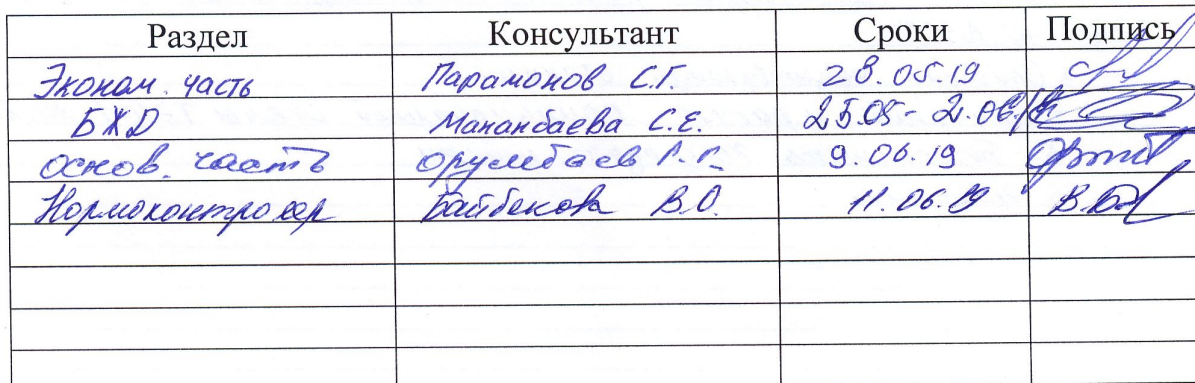 Раздел Консультант Сроки Подпись
Эконом. часть Парамонов С.Г. 28.05.19
БЖД Мананбаева С.Е. 25.05 - 2.06
основ. часть Орумбаев 9.06.19
Нормоконтролер Байбекова В.О. 11.06.19